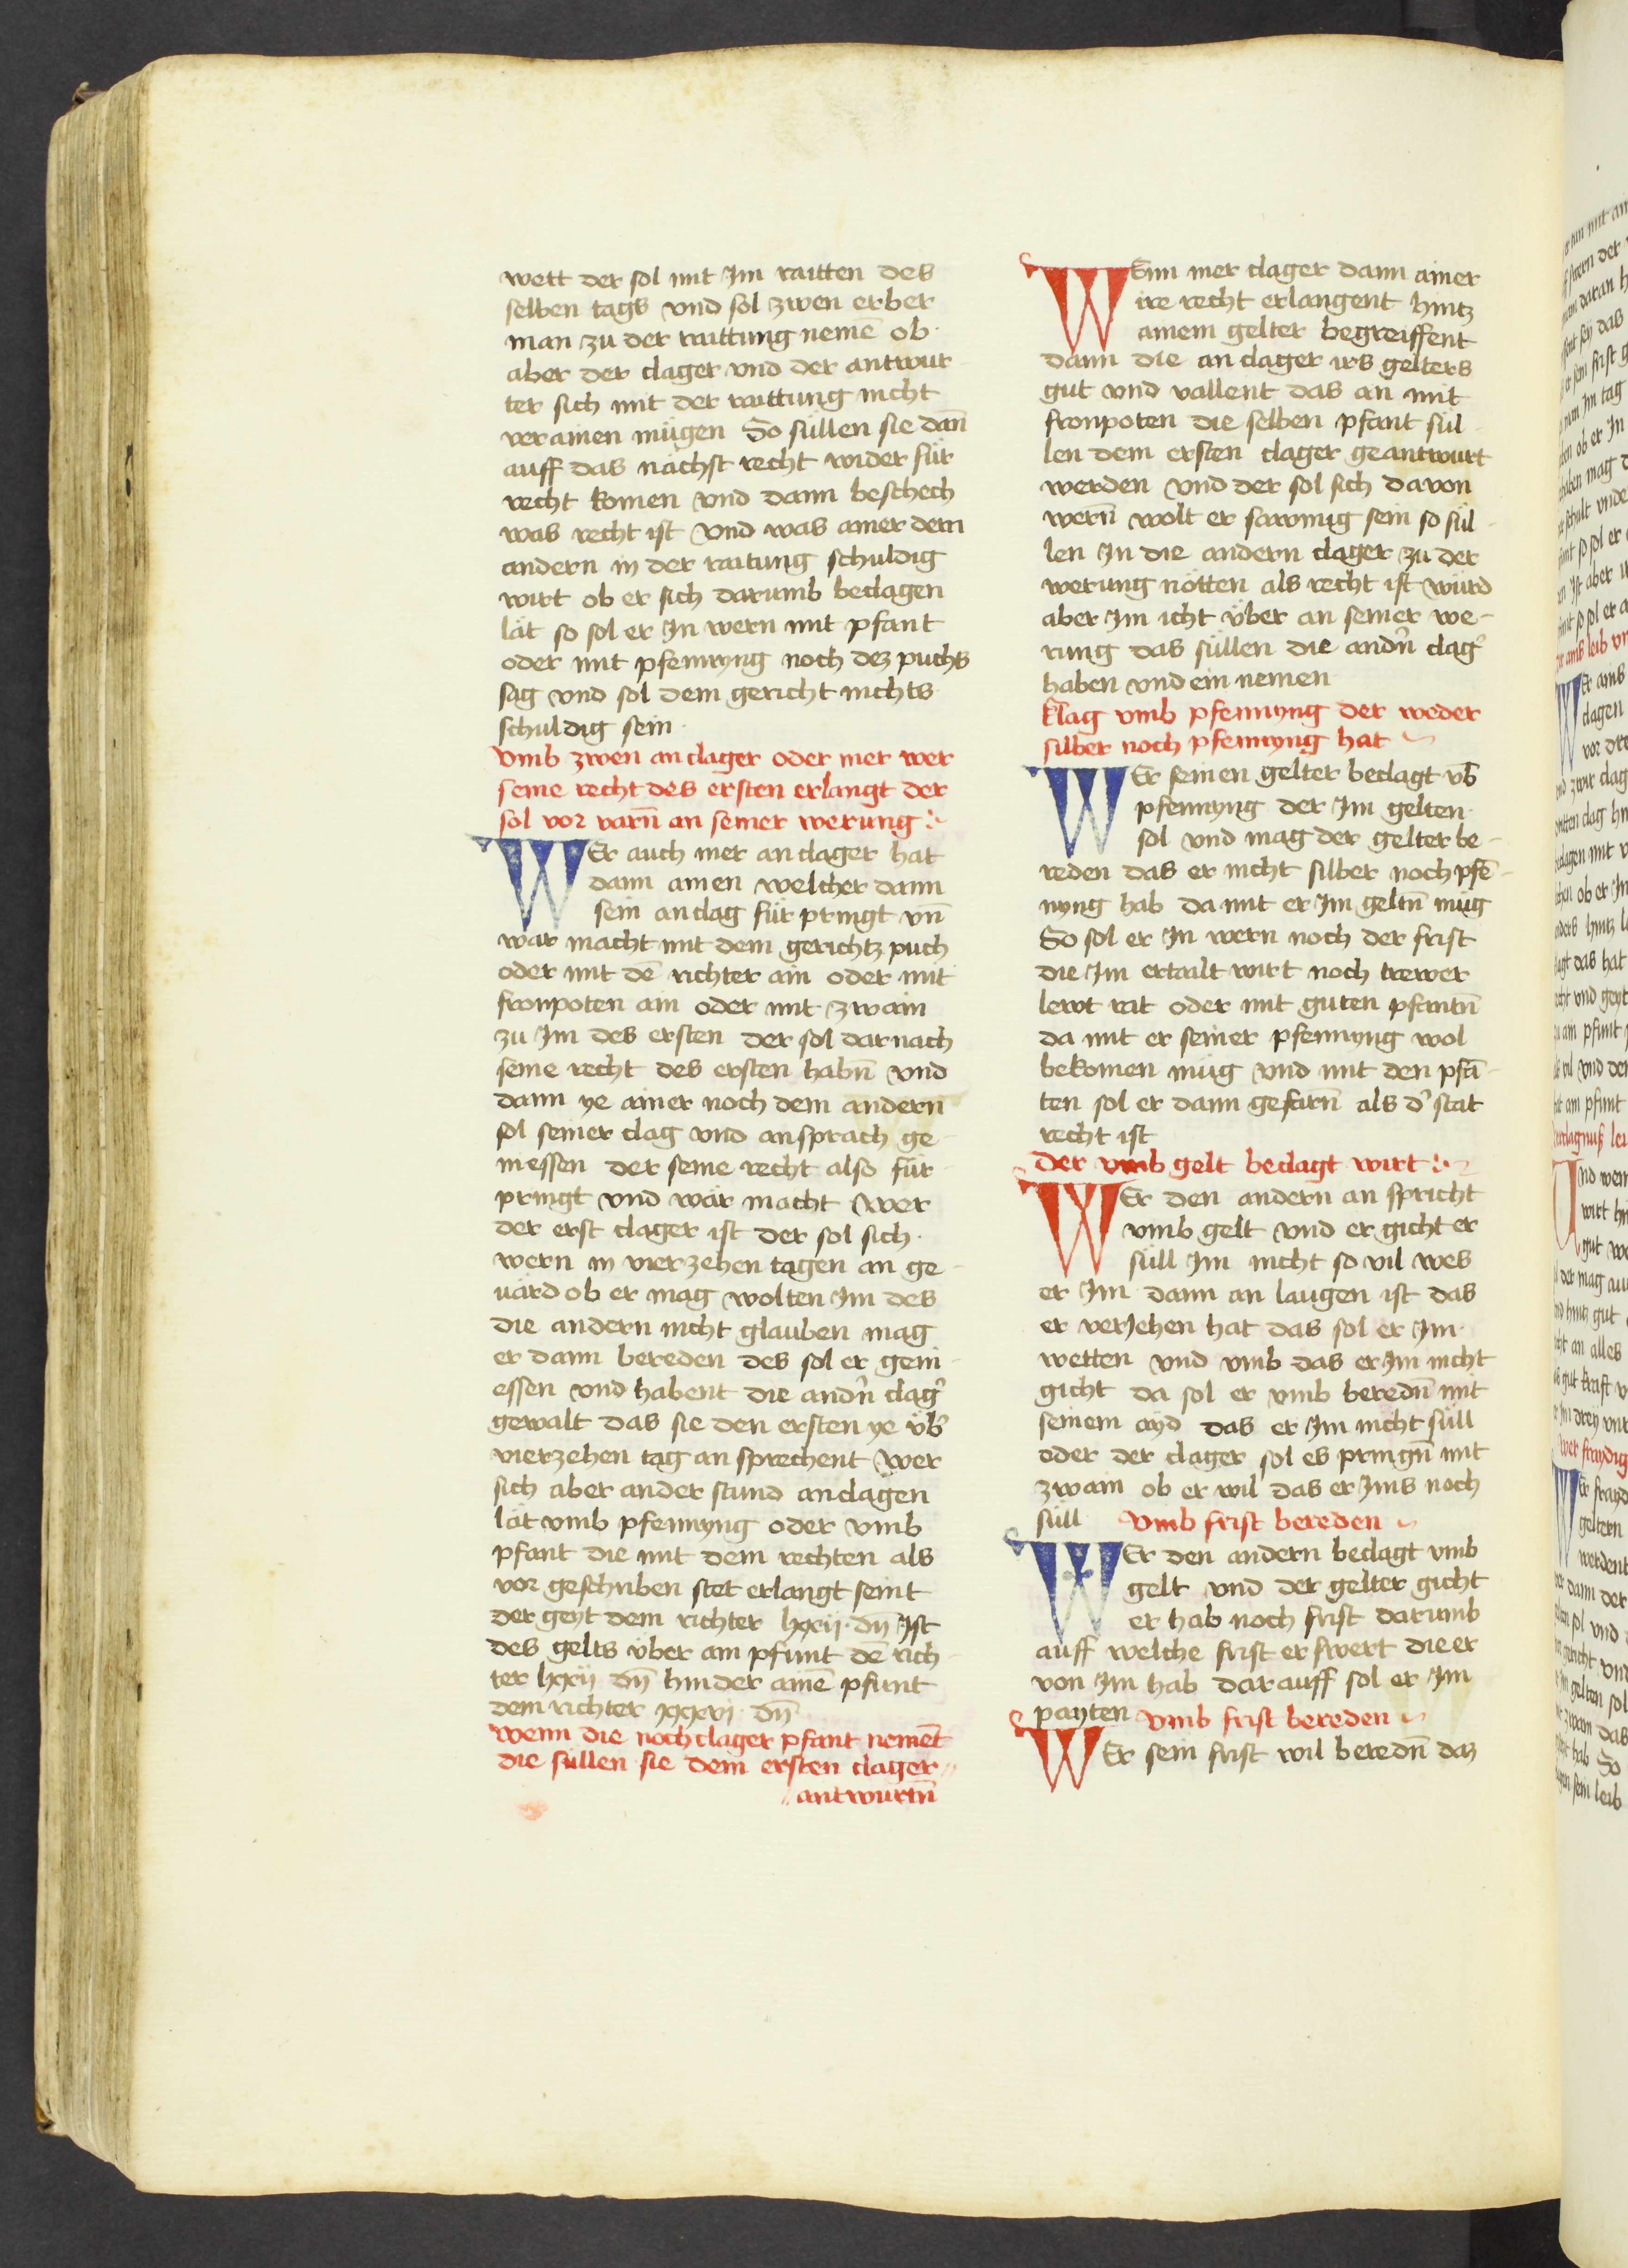 wett der sol mit Im raitten des
selben tags vnd sol zwen erber
man zu der raittung nemē ob
aber der clager vnd der antwur
ter sich mit der raittung nicht
verainen mügen So süllen sie dañ
auff das nächst recht wider für
recht komen vnd dann beschech
was recht ist vnd was ainer dem
andern in der raitung schuldig
wirt ob er sich darumb beclagen
lät so sol er In wern mit pfant
oder mit pfennyng noch dez puchs
sag vnd sol dem gericht nichts
schuldig sein
vmb zwen anclager oder mer wer
seine recht des ersten erlangt der
sol vor varñ an seiner werung
WEr auch mer anclager hat
dann ainen welcher dann
sein anclag für pringt vñ
wär macht mit dem gerichtz puch
oder mit dē richter ain oder mit
fronpoten ain oder mit zwain
zu Im des ersten der sol darnach
seine recht des ersten habñ vnd
dann ye ainer noch dem andern
sol seiner clag vnd ansprach ge
niessen der seine recht also für
pringt vnd wär macht wer
der erst clager ist der sol sich
wern in vierzehen tagen an ge
uärd ob er mag wolten Im des
die andern nicht glauben mag
er dann bereden des sol er geni
essen vnd habent die andñ clag̕
gewalt das sie den ersten ye üb̕
vierzehen tag an sprechent wer
sich aber ander stund anclagen
lät vmb pfennyng oder vmb
pfant die mit dem rechten als
vor geschriben stet erlangt seint
der geyt dem richter lxxij dñ Ist
des gelts über ain pfunt dē rich
ter lxxij dñ hinder ainē pfunt
dem richter xxxvj dñ
wenn die noch clager pfant nemēt
die süllen sie dem ersten clager
antwurtñ
WEnn mer clager dann ainer
ire recht erlangent hintz
ainem gelter begreiffent
dann die anclager irs gelters
gut vnd vallent das an mit
fronpoten die selben pfant sül
len dem ersten clager geantwurt
werden vnd der sol sich davon
werñ wolt er sawmig sein so sül
len In die andern clager zu der
werung nötten als recht ist würd
aber Im icht über an seiner we-
rung das süllen die andñ clag̕
haben vnd ein nemen
klag vmb pfennyng der weder
silber noch pfennyng hat
WEr seinen gelter beclagt vb̄
pfennyng der Im gelten
sol vnd mag der gelter be-
reden das er nicht silber noch pfē-
nyng hab da mit er Im geltñ müg
So sol er In wern noch der frist
die Im ertailt wirt noch trewer
lewt rat oder mit guten pfantñ
da mit er seiner pfennyng wol
bekomen müg vnd mit den pfā-
ten sol er dann gefarñ als d̕ stat
recht ist
der vmb gelt beclagt wirt
WEr den andern an spricht
vmb gelt vnd er gicht er
süll Im nicht so vil wes
er Im dann an laugen ist das
er verJehen hat das sol er Im
wetten vnd vmb das er Im nicht
gicht da sol er vmb beredñ mit
seinem ayd das er Im nicht süll
oder der clager sol es pringñ mit
zwain ob er wil das er Ims noch
süll vmb frist bereden
WEr den andern beclagt vmb
gelt vnd der gelter gicht
er hab noch frist darumb
auff welche frist er swert die er
von Im hab darauff sol er Im
payten vmb frist bereden
WEr sein frist wil beredñ daz